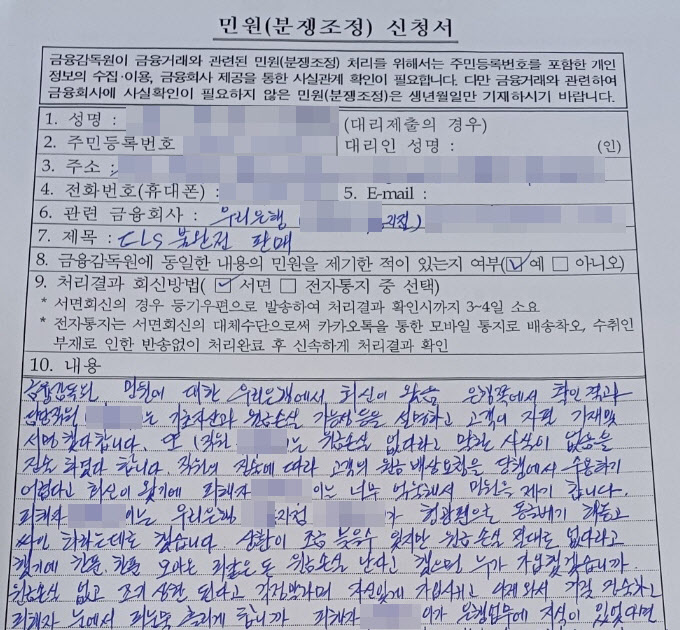 민원(분쟁조정) 신청서
금융감독원이 금융거래와 관련된 민원(분쟁조정) 처리를 위해서는 주민등록번호를 포함한 개인
정보의 수집·이용, 금융회사 제공을 통한 사실관계 확인이 필요합니다. 다만 금융거래와 관련하여
금융회사에 사실확인이 필요하지 않은 민원(분쟁조정)은 생년월일만 기재하시기 바랍니다.
1. 성명 :
(대리제출의 경우)
2. 주민등록번호
대리인 성명 : (인)
3. 주소 :
4. 전화번호(휴대폰) : 5. E-mail :
6. 관련 금융회사 : 우리은행 ( 지점)
7. 제목 : ELS 불완전 판매
8. 금융감독원에 동일한 내용의 민원을 제기한 적이 있는지 여부(☑ 예 □ 아니오)
9. 처리결과 회신방법( ☑ 서면 □ 전자통지 중 선택)
* 서면회신의 경우 등기우편으로 발송하여 처리결과 확인시까지 3~4일 소요
* 전자통지는 서면회신의 대체수단으로써 카카오톡을 통한 모바일 통지로 배송착오, 수취인
부재로 인한 반송없이 처리완료 후 신속하게 처리결과 확인
10. 내용
금융감독원 민원에 대한 우리은행에서 회신이 왔음 은행쪽에서 확인결과
담당직원 는 기초자산과 원금손실 가능성 등을 설명하고 고객의 자필 기재및
서명 했다 합니다. 또 (직원 )는 원금손실 없다라고 말한 사실이 없음을
진술 하였다 합니다. 직원의 진술에 따라 고객의 원금 배상요청은 당행에서 수용하기
어렵다고 회신이 왔기에 피해자 이는 너무 억울해서 민원을 제기 합니다.
피해자 이는 우리은행 지점 가
싸인 하라는데로 했습니다. 상황이 조금 있지만 원금손실 절대로 없다라고
했기에 한푼 한푼 모아온 돈 원금손실 난다고 했으면 누가 가입 했겠습니까
원금손실 없고 조기 상환 된다고 걱정말라며 자신있게 가입시키고 이제와서 거짓 진술하고
피해자 눈에서 피눈물 흘리게 합니까 피해자 이가 은행업무에 지식이 있었다면